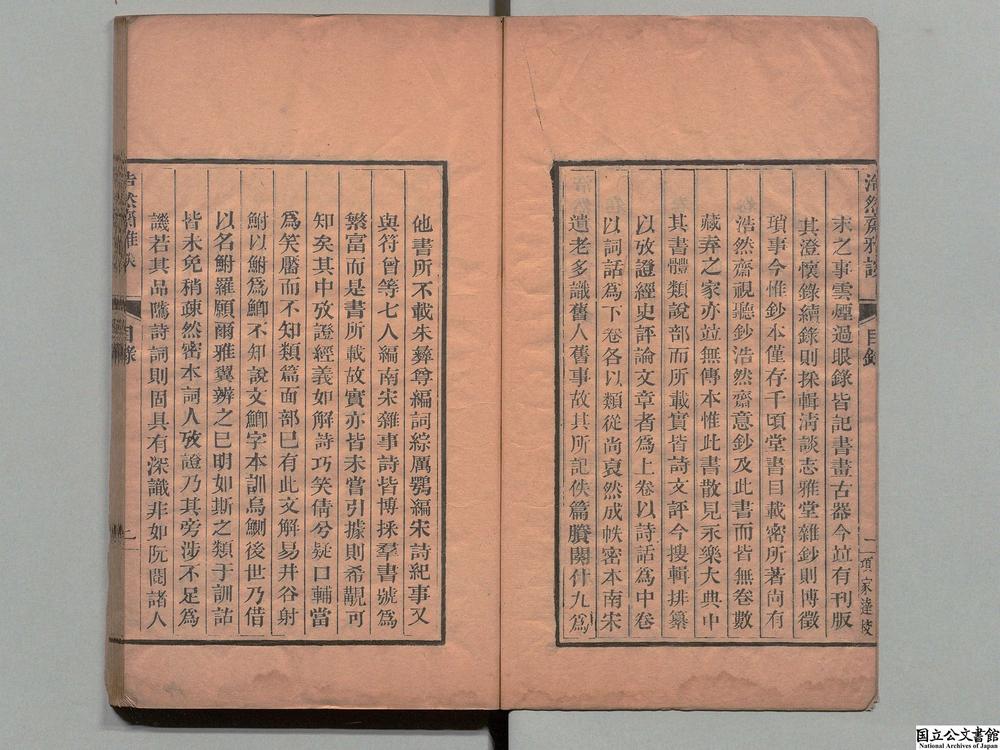 浩然齋雅談 目錄 二 項家達校
末之事雲煙過眼錄皆記書畫古器今竝有刊版
其澄懷錄續錄則採輯淸談志雅堂雜鈔則博徵
瑣事今惟鈔本僅存千頃堂書目載密所著尚有
浩然齋視聽鈔浩然齋意鈔及此書而皆無卷數
藏弆之家亦竝無傳本惟此書散見永樂大典中
其書體類說部而所載實皆詩文評今搜輯排纂
以攷證經史評論文章者爲上卷以詩話爲中卷
以詞話爲下卷各以類從尚裒然成帙密本南宋
遺老多識舊人舊事故其所記佚篇賸闋什九爲
他書所不載朱彝尊編詞綜厲鶚編宋詩紀事又
與符曾等七人編南宋雜事詩皆博採羣書號爲
繁富而是書所載故實亦皆未嘗引據則希覯可
知矣其中攷證經義如解詩巧笑倩兮疑口輔當
爲笑靨而不知類篇面部已有此文解易井谷射
鮒以鮒爲鯽不知說文鯽字本訓烏鰂後世乃借
以名鮒羅願爾雅翼辨之已明如斯之類于訓詁
皆未免稍疎然密本詞人攷證乃其旁涉不足爲
譏若其品騭詩詞則固具有深識非如阮閱諸人
目錄
国立公文書館
National Archives of Japan